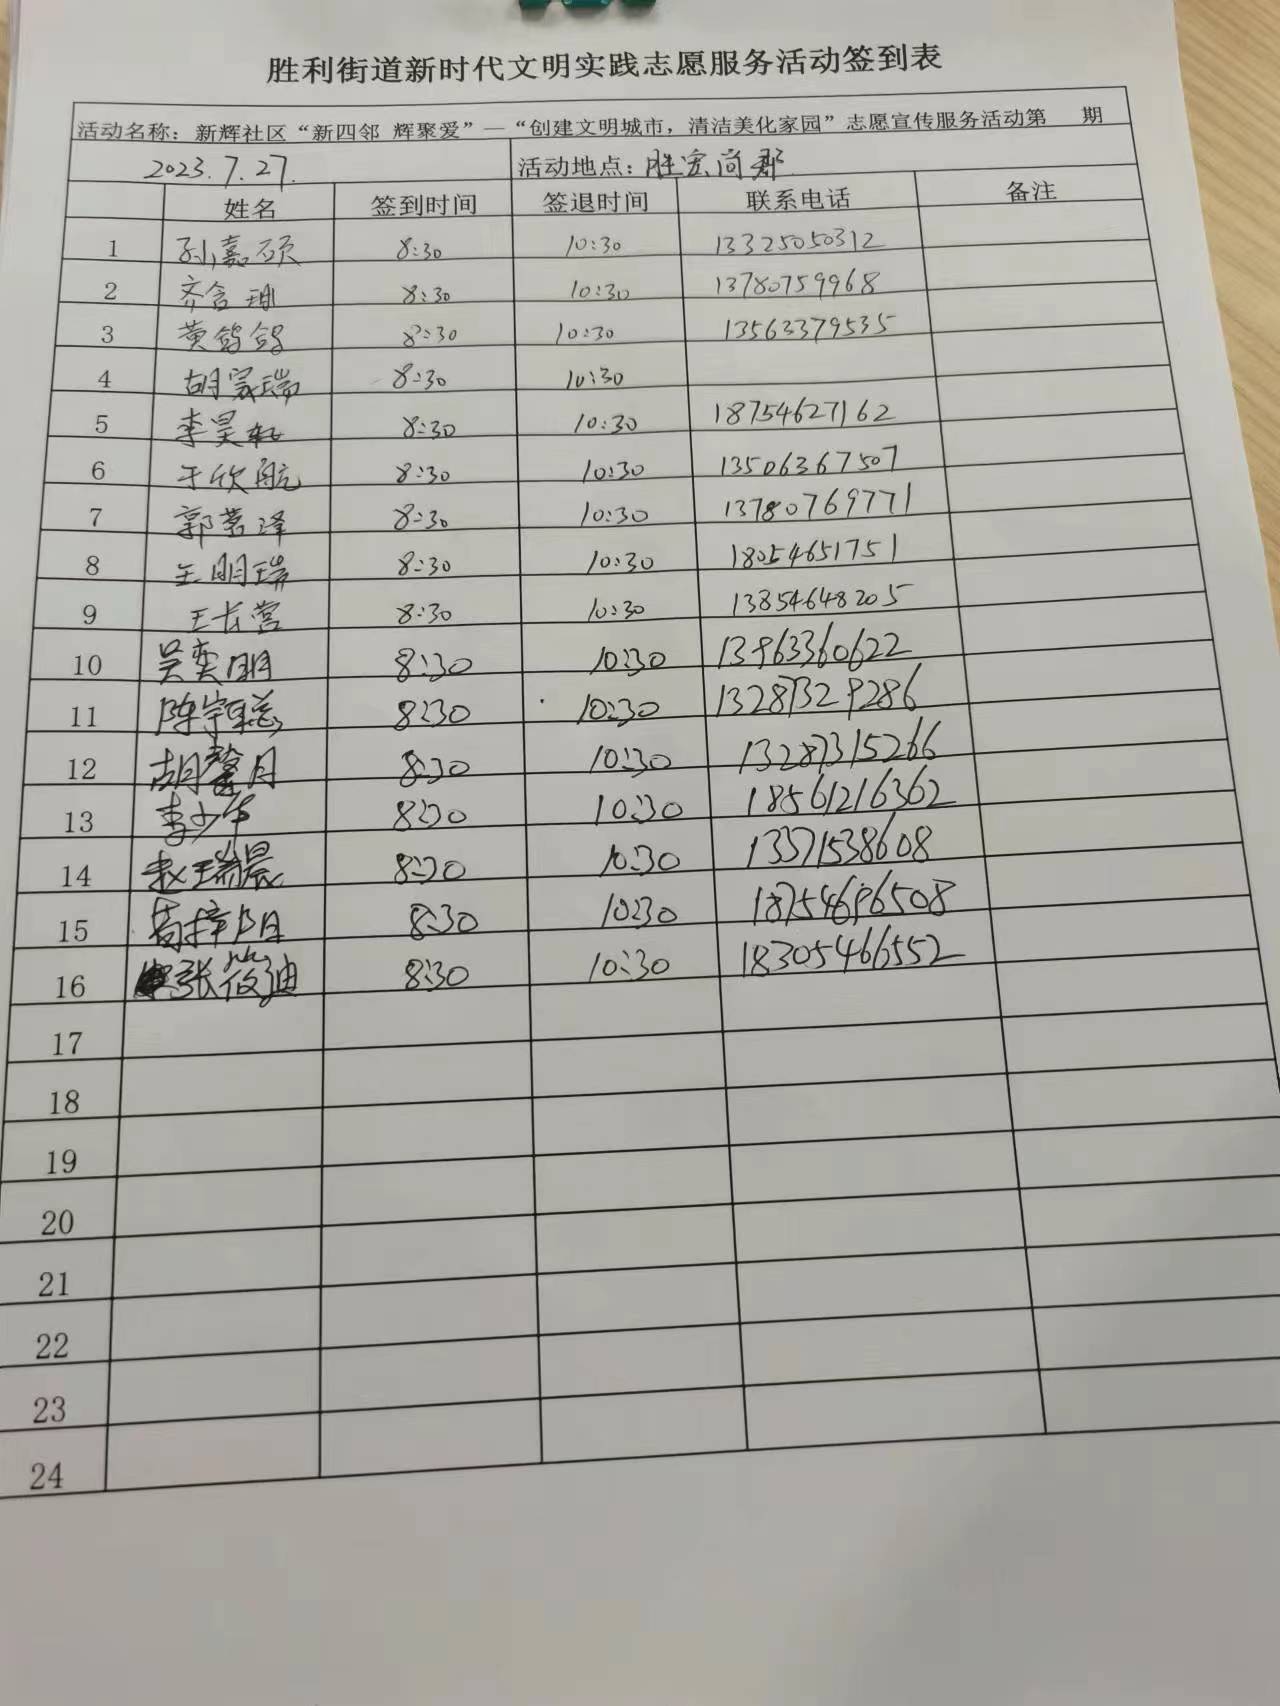 胜利街道新时代文明实践志愿服务活动签到表
活动名称：新辉社区“新四邻 辉聚爱”—“创建文明城市，清洁美化家园”志愿宣传服务活动第 期
2023.7.27. 活动地点：胜宏尚郡
姓名 签到时间 签退时间 联系电话 备注
1 孙嘉硕 8:30 10:30 13325050312
2 齐含珊 8:30 10:30 13780759968
3 黄鸽鸽 8:30 10:30 13563379535
4 胡家瑞 8:30 10:30
5 李昊轩 8:30 10:30 18754627162
6 于欣航 8:30 10:30 13506367507
7 郭茗泽 8:30 10:30 13780769771
8 王明瑞 8:30 10:30 18054651751
9 王长营 8:30 10:30 13854648205
10 吴奕明 8:30 10:30 13963360622
11 陈宇聪 8:30 10:30 13287329286
12 胡馨月 8:30 10:30 13287315266
13 李少华 8:30 10:30 18561216362
14 赵瑞晨 8:30 10:30 13371538608
15 苟梓阳 8:30 10:30 18754686508
16 张筱迪 8:30 10:30 18305466552
17
18
19
20
21
22
23
24